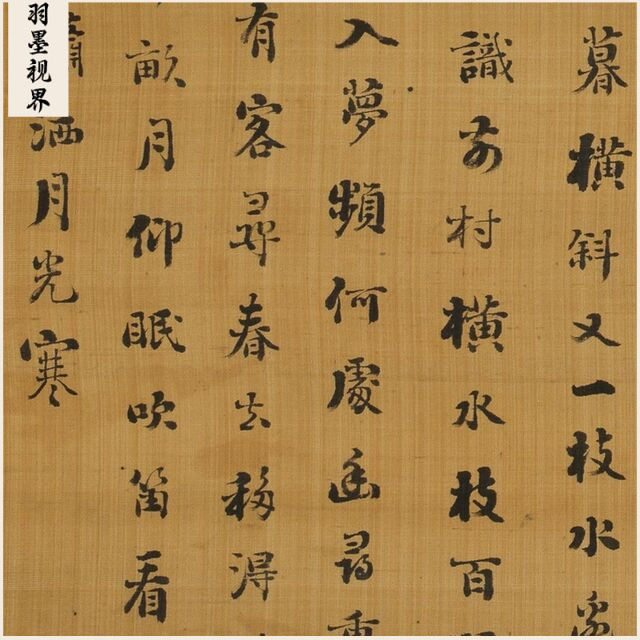 暮橫斜又一枝水
識前村橫水枝百
入夢頻何處幽尋重
有客尋春去移得
畝月仰眠吹笛看
洒月光寒
羽墨视界